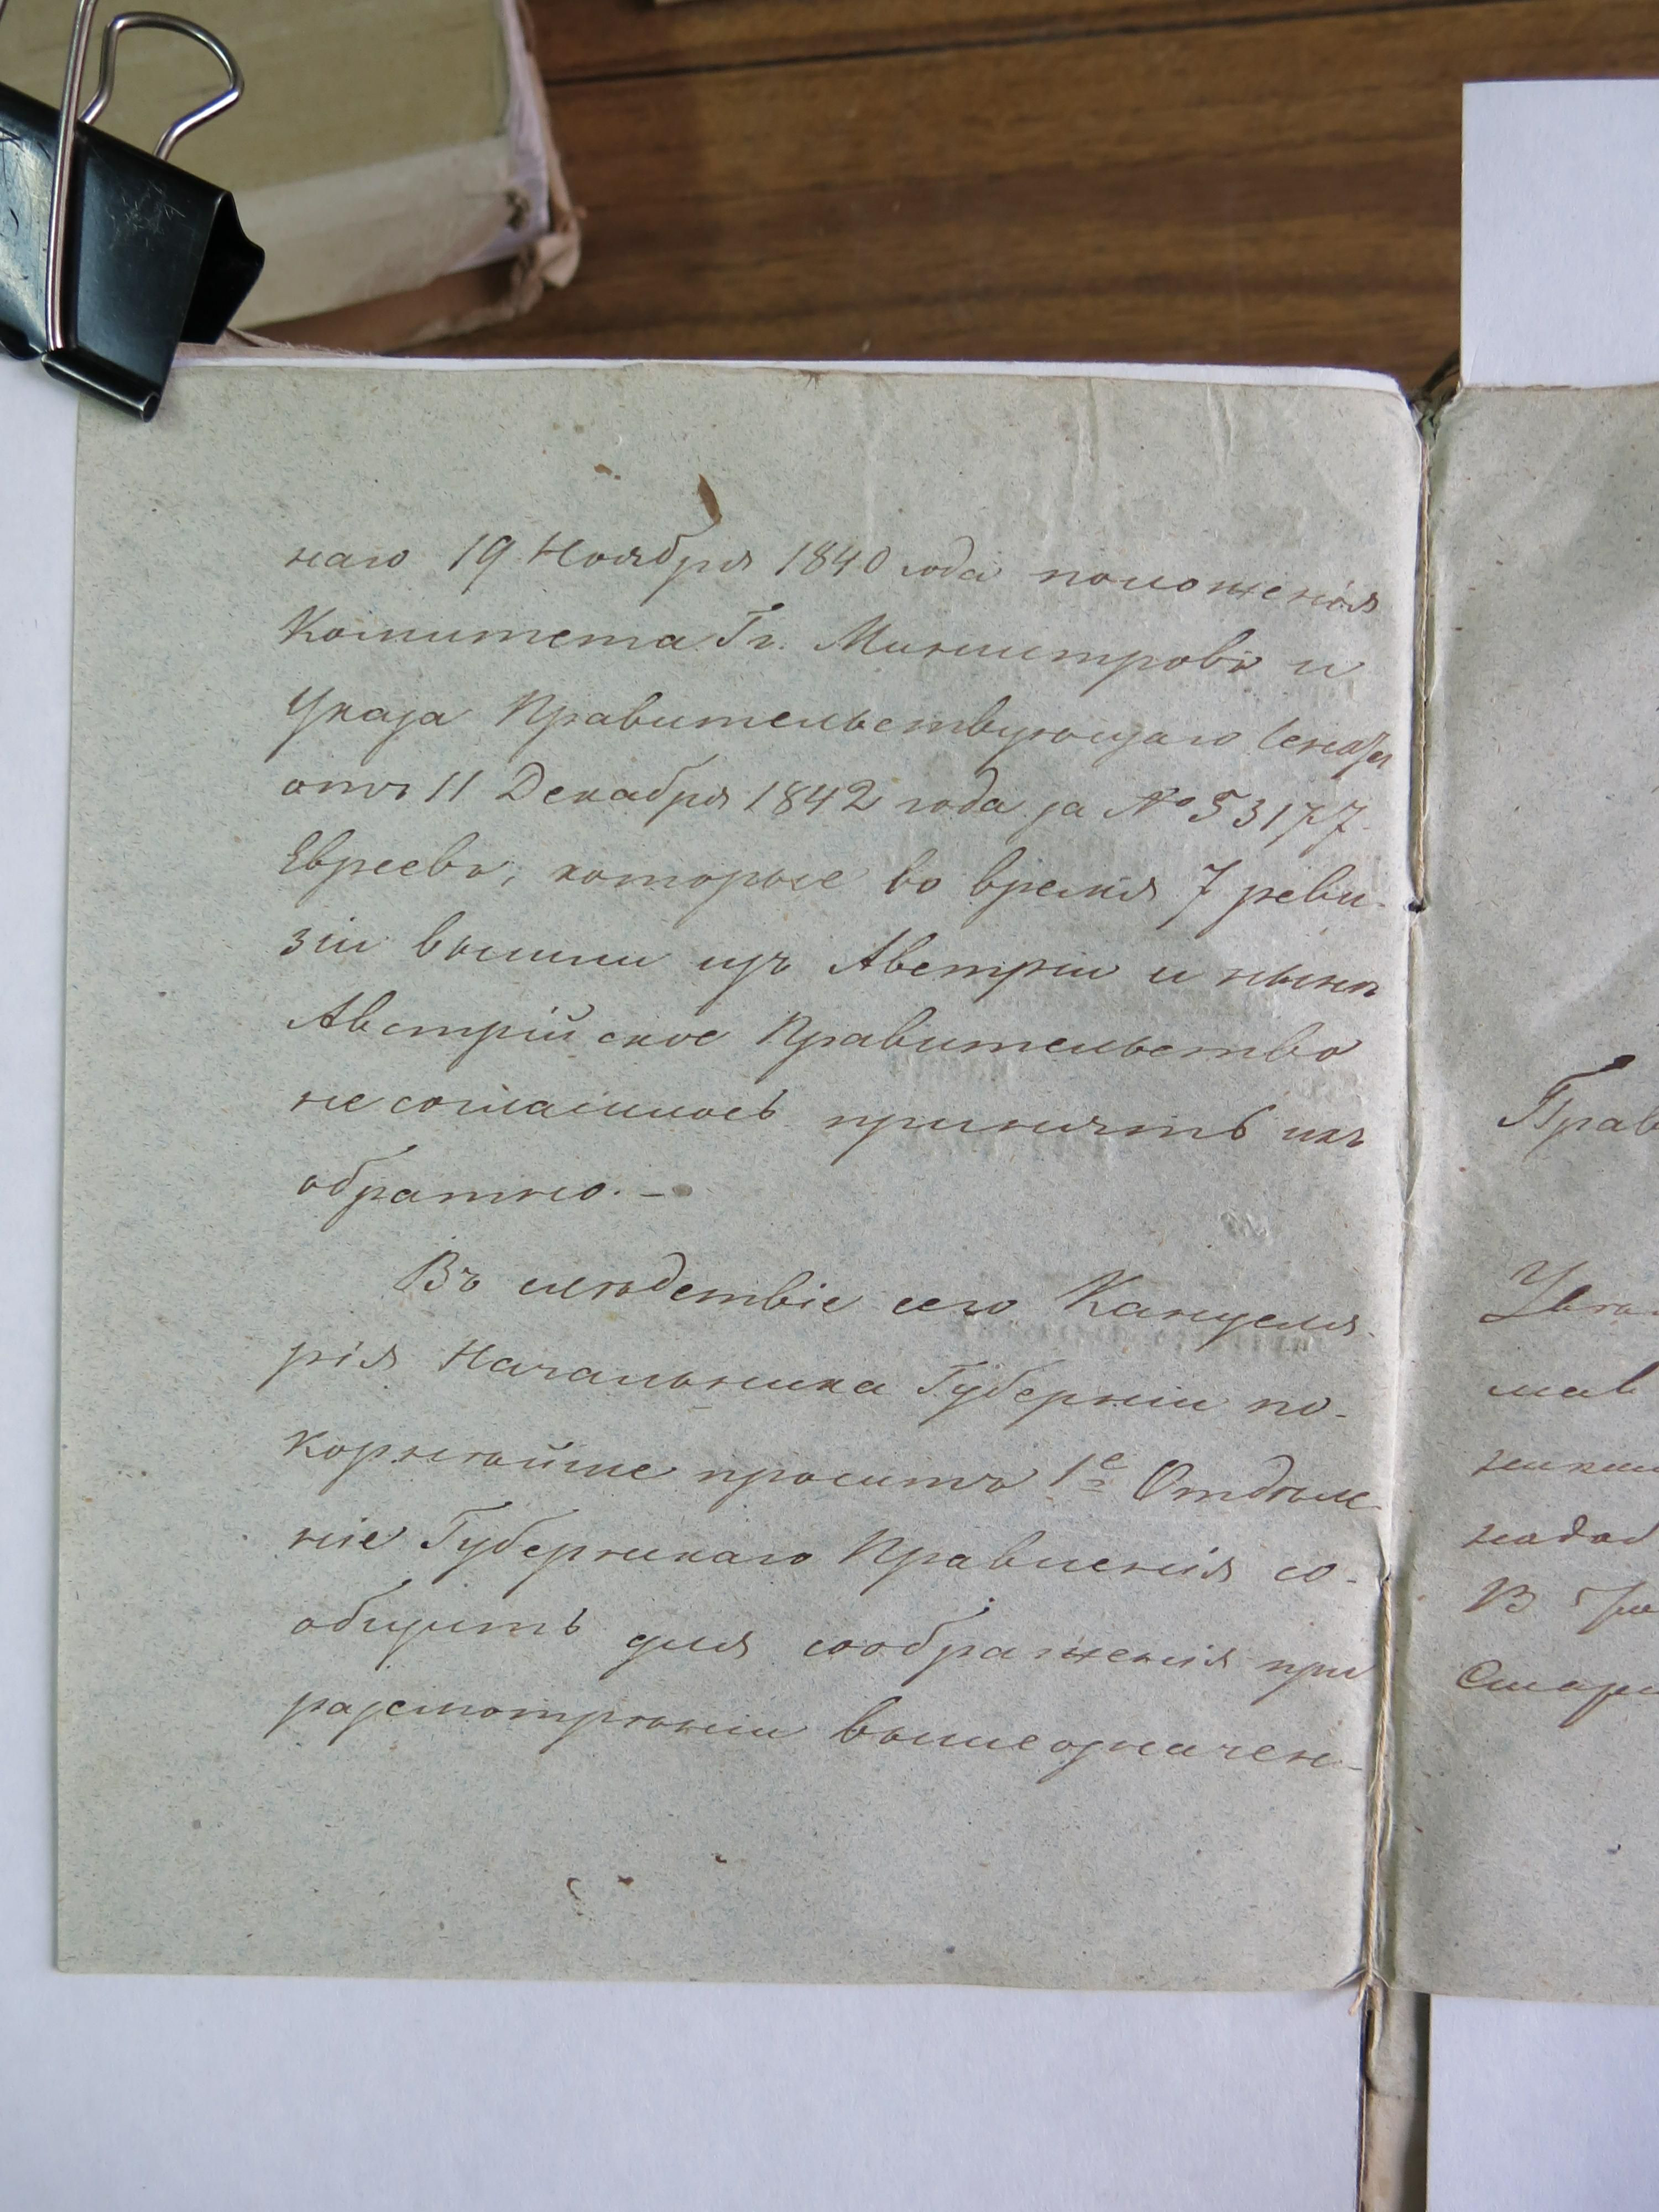 наго 19 Ноября 1840 года положенія
Комитета Гг. Министровъ и
Указа Правительствующаго Сената
отъ 11 Декабря 1842 года за № 53177.
Евреевъ, которые во время 7 реви-
зіи вышли изъ Австріи и нынѣ
Австрійское Правительство
не согласилось принять ихъ
обратно. —
Въ слѣдствіе сего Канцеля-
рія Начальника Губерніи по-
корнѣйше проситъ 1е Отдѣле-
ніе Губернскаго Правленія со-
общить для соображенія при
разсмотрѣніи вышеозначен-
Прав
мав
надоб